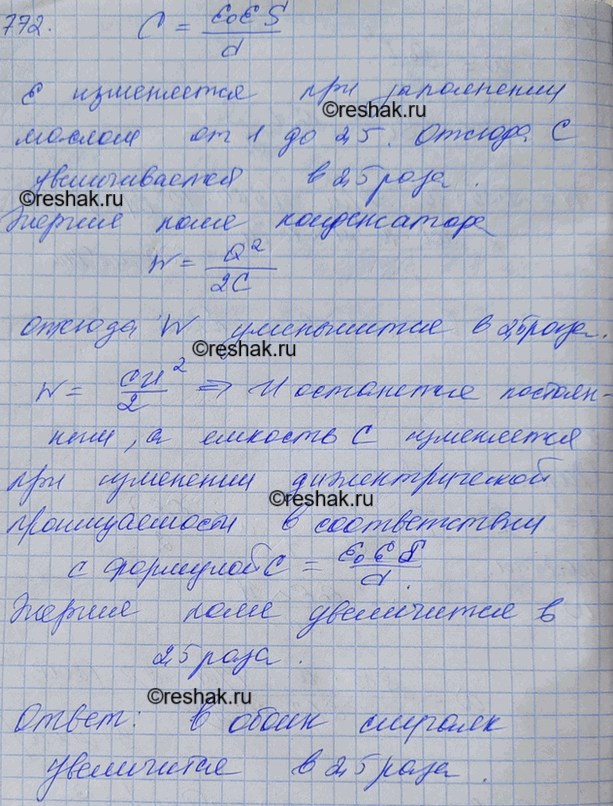 772. C = ε₀εS / d
ε изменяется при заполнении
©reshak.ru
маслом от 1 до 2,5. Отсюда C
увеличивается в 2,5 раза.
©reshak.ru
Энергия поля конденсатора
W = Q² / 2C
отсюда W уменьшится в 2,5 раза.
©reshak.ru
W = CU² / 2 ⇒ U останется постоян-
ным, а емкость C изменяется
при изменении диэлектрической
©reshak.ru
проницаемости в соответствии
с формулой C = ε₀εS / d.
Энергия поля увеличится в
2,5 раза.
©reshak.ru
Ответ: в обоих случаях
увеличится в 2,5 раза.